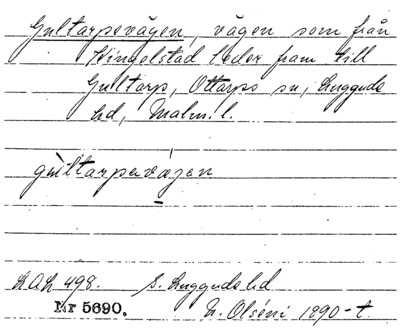 Gultarpevägen, vägen som från
Vingelstad leder fram till
Gultarp, Ottarps sn, Luggude
hd, Malm. l.
gùltarpevágen
LAL 498. S. Luggudes hd
Nr 5690. N. Olséni 1890-t.